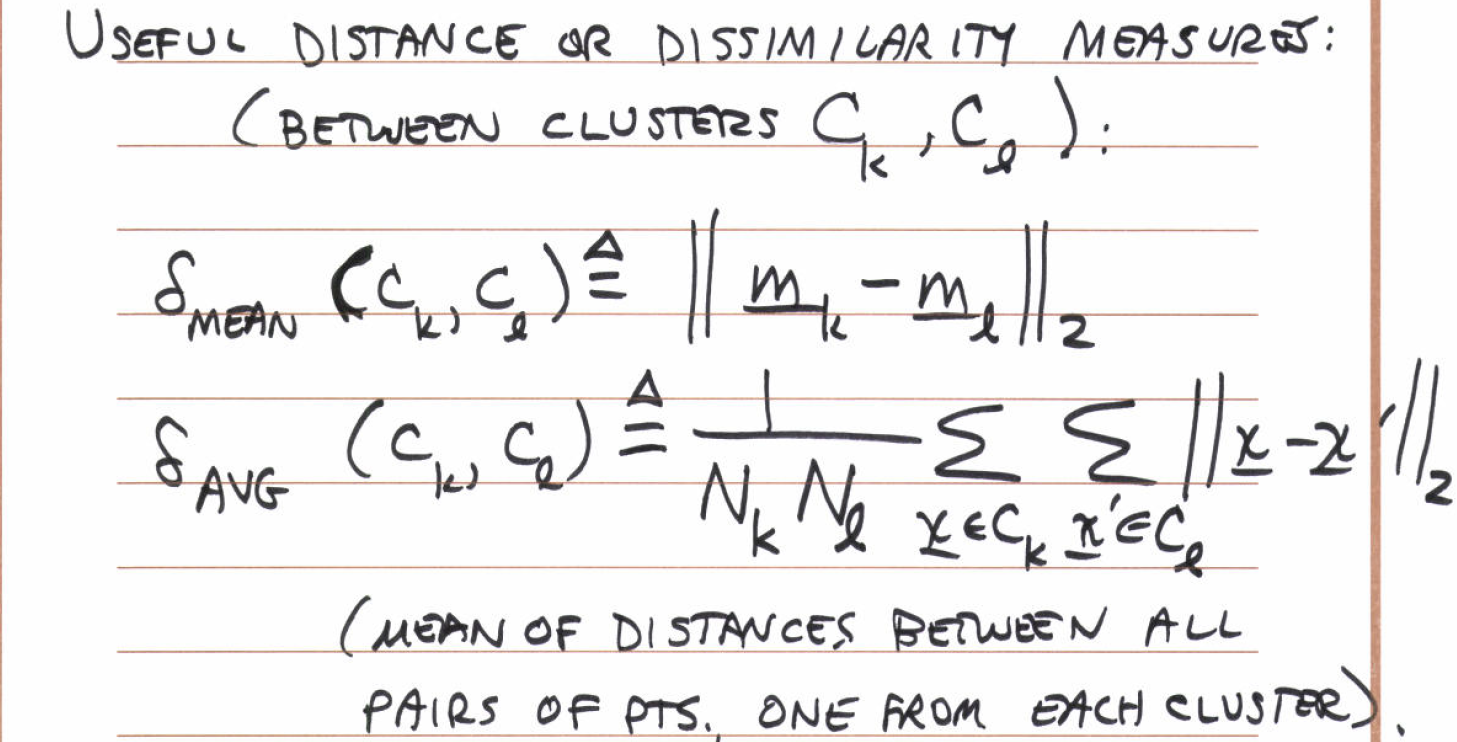 USEFUL DISTANCE OR DISSIMILARITY MEASURES:
(BETWEEN CLUSTERS C_k, C_l):
δ_MEAN (C_k, C_l) ≜ ‖m̲_k - m̲_l‖_2
δ_AVG (C_k, C_l) ≜ 1/(N_k N_l) Σ_{x̲∈C_k} Σ_{x̲'∈C_l} ‖x̲ - x̲'‖_2
(MEAN OF DISTANCES BETWEEN ALL
PAIRS OF PTS. ONE FROM EACH CLUSTER).